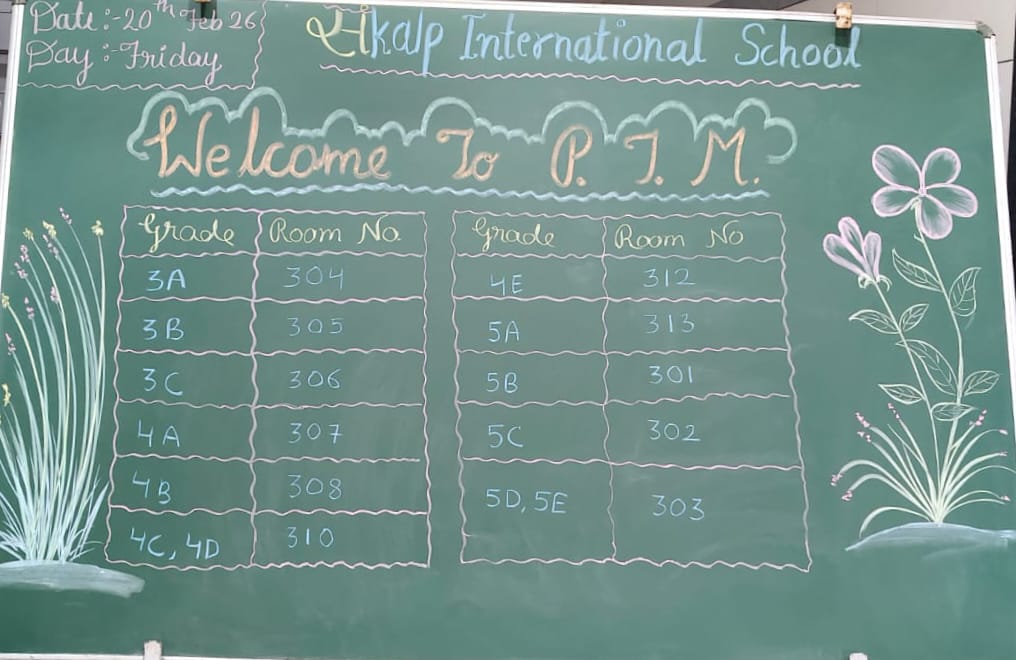 Date:-20th Feb 26
Day:-Friday
संkalp International School
Welcome To P.T.M.
Grade Room No.
3A 304
3B 305
3C 306
4A 307
4B 308
4C, 4D 310
Grade Room No
4E 312
5A 313
5B 301
5C 302
5D, 5E 303